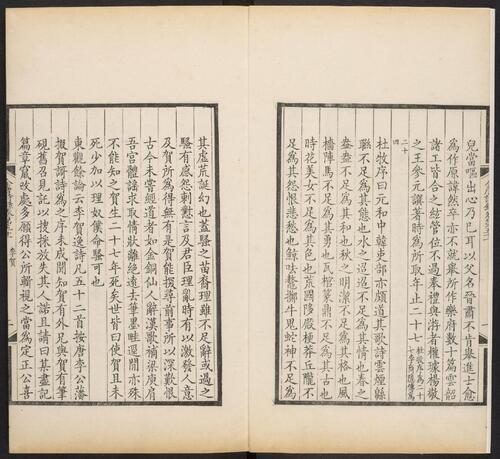 兒當嘔出心乃已耳以父名晉肅不肯舉進士愈
為作原諱然卒亦不就舉所作樂府數十篇雲韶
諸工皆合之絃管位不過奉禮與游者權璩楊敬
之王參元譔著時為所取年止二十七
杜牧序為二十
七李商隱傳為
二十
四
杜牧序曰元和中韓吏部亦頗道其歌詩雲煙緜
聯不足為其態也水之迢迢不足為其情也春之
盎盎不足為其和也秋之明潔不足為其格也風
檣陣馬不足為其勇也瓦棺篆鼎不足為其古也
時花美女不足為其色也荒國陊殿梗莽丘隴不
足為其怨恨悲愁也鯨呿鼇擲牛鬼蛇神不足為
其虛荒誕幻也蓋騷之苗裔理雖不足辭或過之
騷有感怨刺懟言及君臣理亂時有以激發人意
及賀所為得無有是賀能探尋前事所以深歎恨
古今未嘗經道者如金銅仙人辭漢歌補梁庾肩
吾宮體謠求取情狀離絕遠去筆墨畦逕間亦殊
不能知之賀生二十七年死矣世皆曰使賀且未
死少加以理奴僕命騷可也
東觀餘論云李賀逸詩凡五十二首按唐李公藩
掇賀謌詩為之序未成聞知賀有外兄與賀有筆
硯舊召見託以搜採放失其人諾且請曰某盡記
篇章竄改處多願得公所輯視之當為定正公喜
李賀